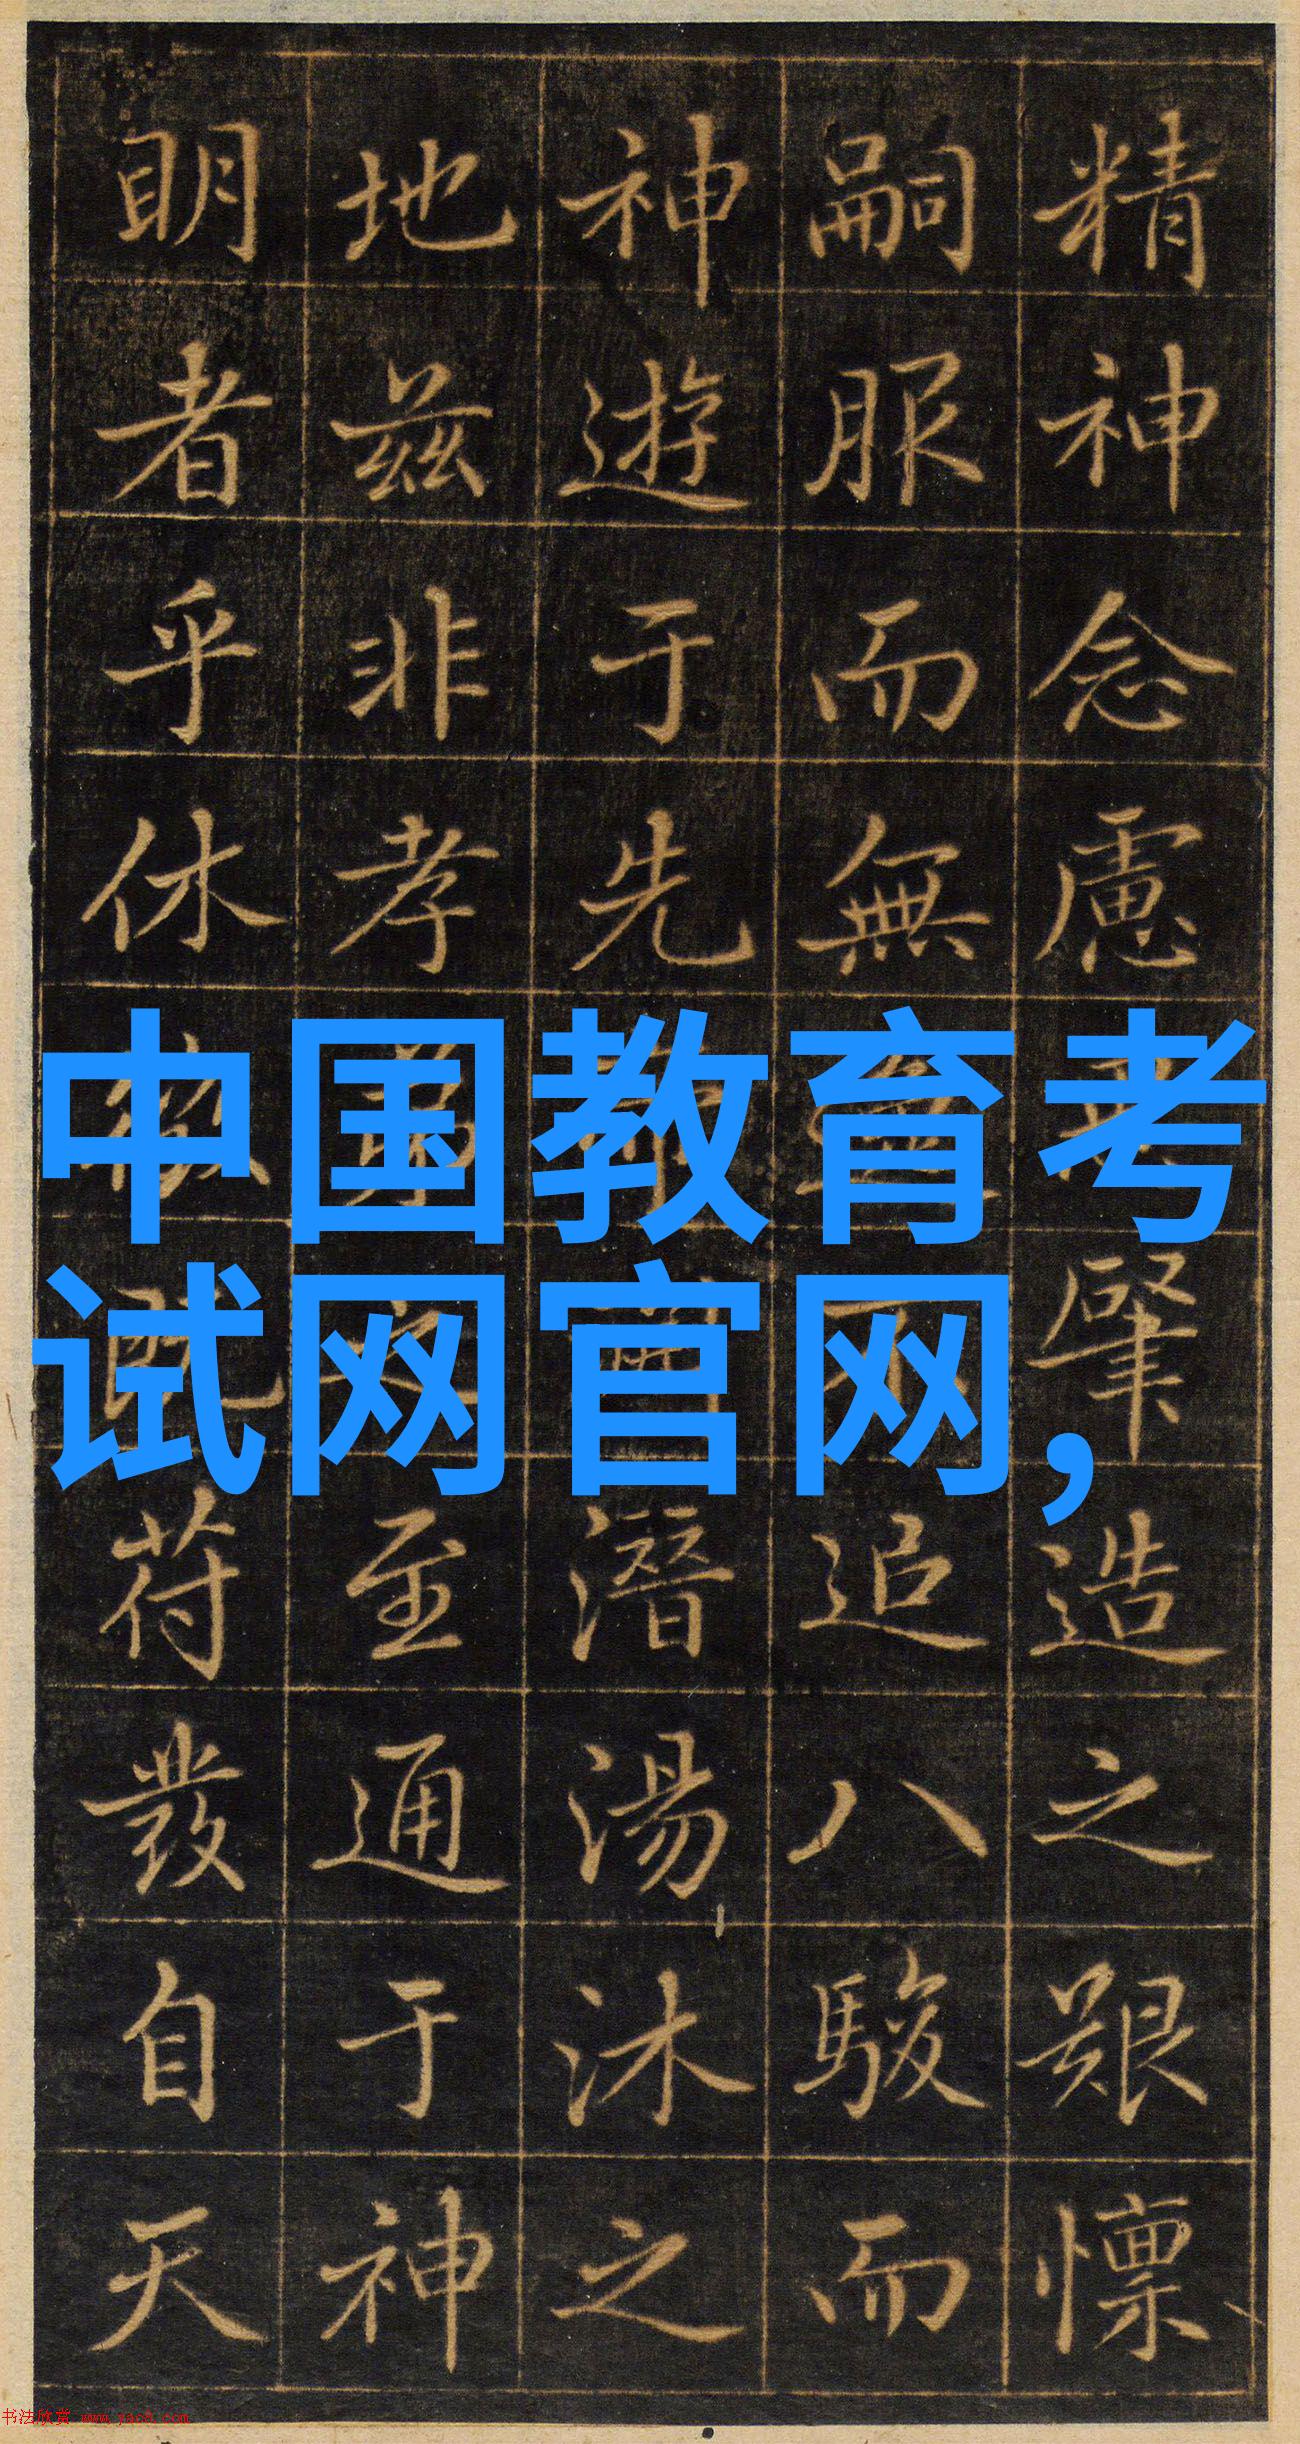 精神念慮肇造之艱懍
嗣服而無不追八駿而
神遊于先潛湯沐之
地茲非孝弟之至通于神
明者乎休既符發自天
中国教育考
试网官网,
书法欣赏 www.yac8.com